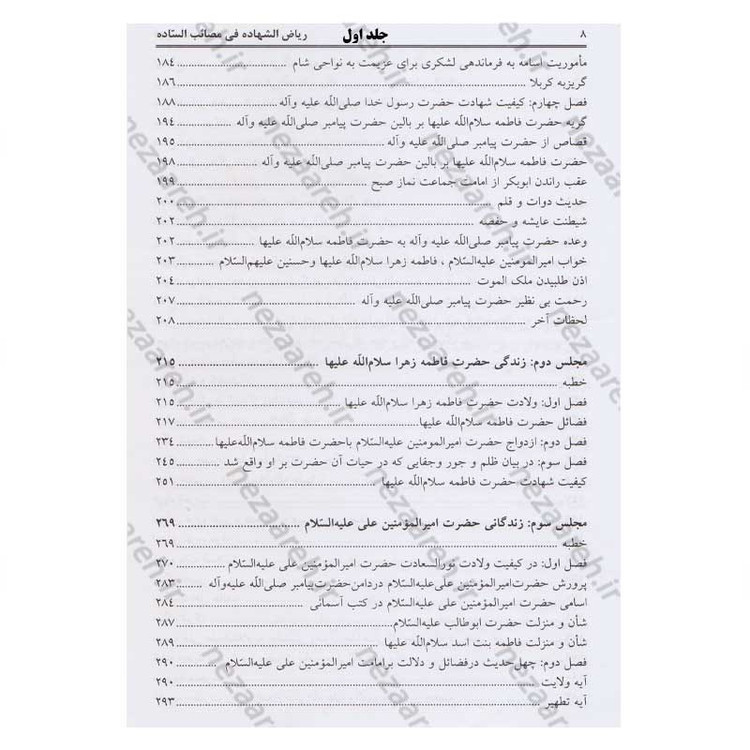 ۸ جلد اول ریاض الشهاده فی مصائب السّاده
مأموریت اسامه به فرماندهی لشکری برای عزیمت به نواحی شام ................ ۱۸۴
گریزبه کربلا ................ ۱۸۶
فصل چهارم: کیفیت شهادت حضرت رسول خدا صلی‌اللّه علیه وآله ................ ۱۸۸
گریه حضرت فاطمه سلام‌اللّه علیها بر بالین حضرت پیامبر صلی‌اللّه علیه وآله ................ ۱۹۴
قصاص از حضرت پیامبر صلی‌اللّه علیه وآله ................ ۱۹۵
حضرت فاطمه سلام‌اللّه علیها بر بالین حضرت پیامبر صلی‌اللّه علیه وآله ................ ۱۹۸
عقب راندن ابوبکر از امامت جماعت نماز صبح ................ ۱۹۹
حدیث دوات و قلم ................ ۲۰۰
شیطنت عایشه و حفصه ................ ۲۰۲
وعده حضرت پیامبر صلی‌اللّه علیه وآله به حضرت فاطمه سلام‌اللّه علیها ................ ۲۰۲
خواب امیرالمومنین علیه‌السّلام ، فاطمه زهرا سلام‌اللّه علیها وحسنین علیهم‌السّلام ................ ۲۰۳
اذن طلبیدن ملک الموت ................ ۲۰۴
رحمت بی نظیر حضرت پیامبر صلی‌اللّه علیه وآله ................ ۲۰۷
لحظات آخر ................ ۲۰۸
مجلس دوم: زندگی حضرت فاطمه زهرا سلام‌اللّه علیها ................ ۲۱۵
خطبه ................ ۲۱۵
فصل اول: ولادت حضرت فاطمه زهرا سلام‌اللّه علیها ................ ۲۱۵
فضائل حضرت فاطمه سلام‌اللّه علیها ................ ۲۱۷
فصل دوم: ازدواج حضرت امیرالمومنین علیه‌السّلام باحضرت فاطمه سلام‌اللّه‌علیها ................ ۲۳۴
فصل سوم: در بیان ظلم و جور وجفایی که در حیات آن حضرت بر او واقع شد ................ ۲۴۵
کیفیت شهادت حضرت فاطمه سلام‌اللّه علیها ................ ۲۵۱
مجلس سوم: زندگانی حضرت امیرالمؤمنین علی علیه‌السّلام ................ ۲۶۹
خطبه ................ ۲۶۹
فصل اول: در کیفیت ولادت نورالسعادت حضرت امیرالمؤمنین علی علیه‌السّلام ................ ۲۷۰
پرورش حضرت‌امیرالمؤمنین علی علیه‌السّلام دردامن‌حضرت‌پیامبر صلی‌اللّه علیه‌وآله ................ ۲۸۳
اسامی حضرت امیرالمؤمنین علی علیه‌السّلام در کتب آسمانی ................ ۲۸۴
شأن و منزلت حضرت ابوطالب علیه‌السّلام ................ ۲۸۷
شأن و منزلت فاطمه بنت اسد سلام‌اللّه علیها ................ ۲۸۹
فصل دوم: چهل‌حدیث درفضائل و دلالت برامامت امیرالمؤمنین علی علیه‌السّلام ................ ۲۹۰
آیه ولایت ................ ۲۹۰
آیه تطهیر ................ ۲۹۳
nezaareh.ir